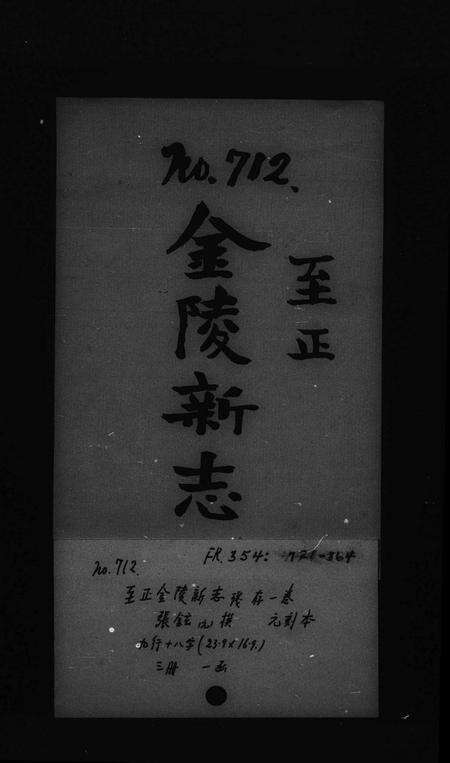 No. 712.
至正
金陵新志
FR. 354:
No. 712.
至正金陵新志 殘存一卷
張鉉 撰 元刻本
九行十八字(23.9×16.9.)
三冊 一函